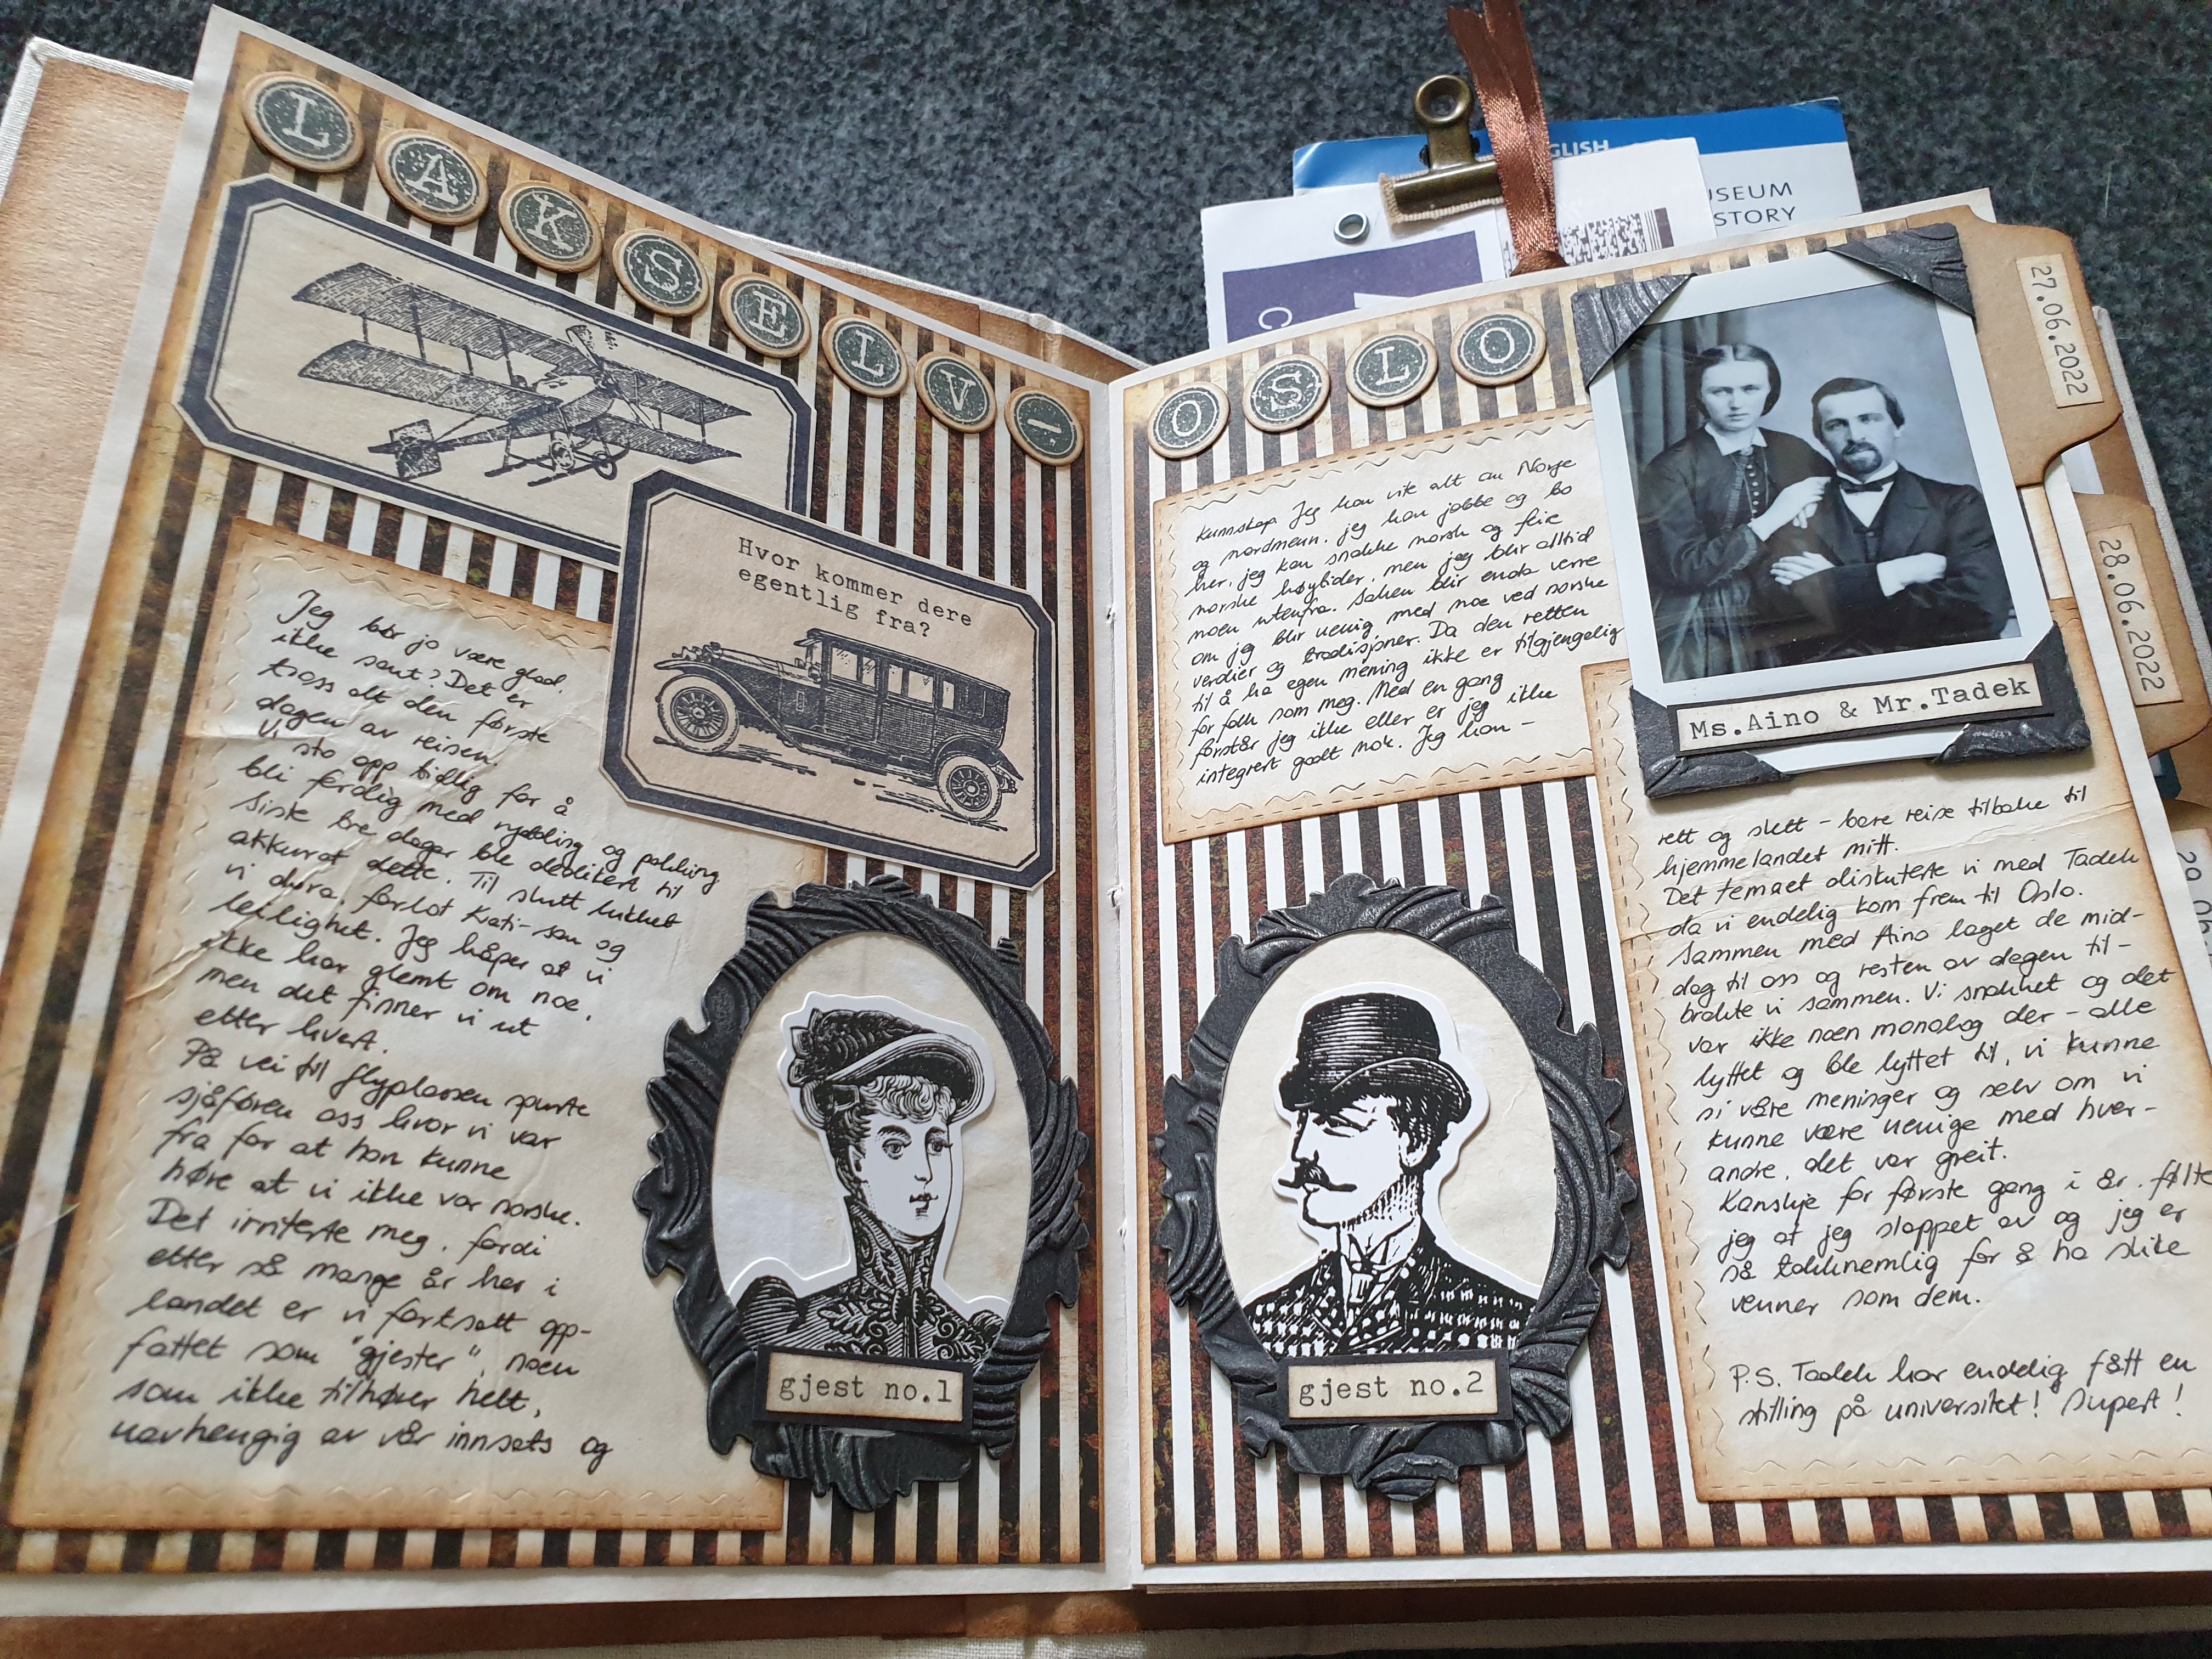 LAKSELV-
Hvor kommer dere
egentlig fra?
Jeg bør jo være glad,
ikke sant? Det er
tross alt den første
dagen av reisen.
Vi sto opp tidlig for å
bli ferdig med rydding og pakking
Siste tre dager ble dedikert til
akkurat dette. Til slutt lukket
vi døra, forlot Kati-san og
leilighet. Jeg håper at vi
ikke har glemt om noe,
men det finner vi ut
etter hvert.
På vei til flyplassen spurte
sjåføren oss hvor vi var
fra for at han kunne
høre at vi ikke var norske.
Det irriterte meg, fordi
etter så mange år her i
landet er vi fortsatt opp-
fattet som "gjester", noen
som ikke tilhører helt,
uavhengig av vår innsats og
gjest no.1
OSLO
GLISH
USEUM
STORY
27.06.2022
28.06.2022
kunnskap. Jeg kan vite alt om Norge
og nordmenn, jeg kan jobbe og bo
her, jeg kan snakke norsk og feire
norske høytider, men jeg blir alltid
noen utenfra. Saken blir enda verre
om jeg blir uenig med noe ved norske
verdier og tradisjoner. Da den retten
til å ha egen mening ikke er tilgjengelig
for folk som meg. Med en gang
forstår jeg ikke eller er jeg ikke
integrert godt nok. Jeg kan -
Ms.Aino & Mr.Tadek
rett og slett - bare reise tilbake til
hjemmelandet mitt.
Det temaet diskuterte vi med Tadek
da vi endelig kom frem til Oslo.
Sammen med Aino laget de mid-
dag til oss og resten av dagen til-
brakte vi sammen. Vi snakket og det
var ikke noen monolog der - alle
lyttet og ble lyttet til, vi kunne
si våre meninger og selv om vi
kunne være uenige med hver-
andre, det var greit.
Kanskje for første gang i år, følte
jeg at jeg slappet av og jeg er
så takknemlig for å ha slike
venner som dem.
P.S. Tadek har endelig fått en
stilling på universitet! Supert!
gjest no.2